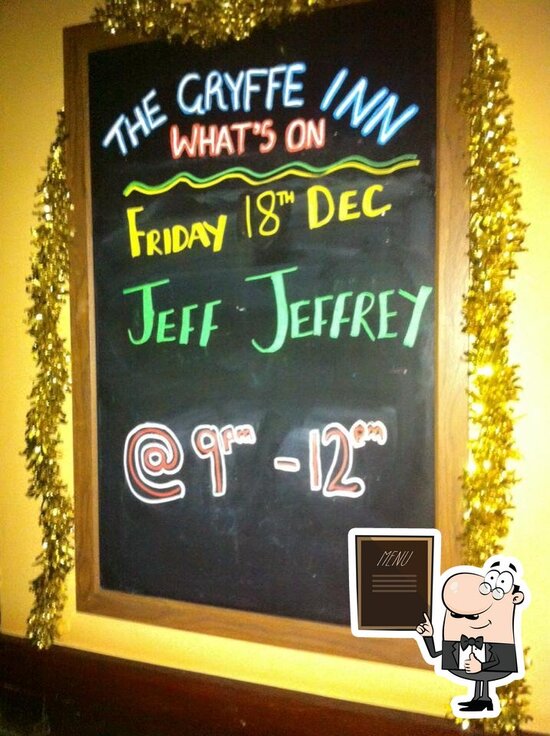 THE GRYFFE INN
WHAT'S ON
FRIDAY 18TH DEC
JEFF JEFFREY
@ 9PM - 12PM
MENU